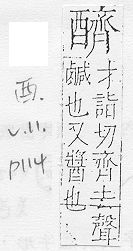 齊
酉
才詣切齊去聲
鹹也又醬也
酉.
V.11.
P114